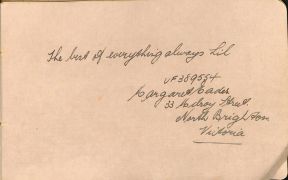 The best of everything always Lil
VF389554
Margaret Eader
33 McIlroy Street
North Brighton
Victoria